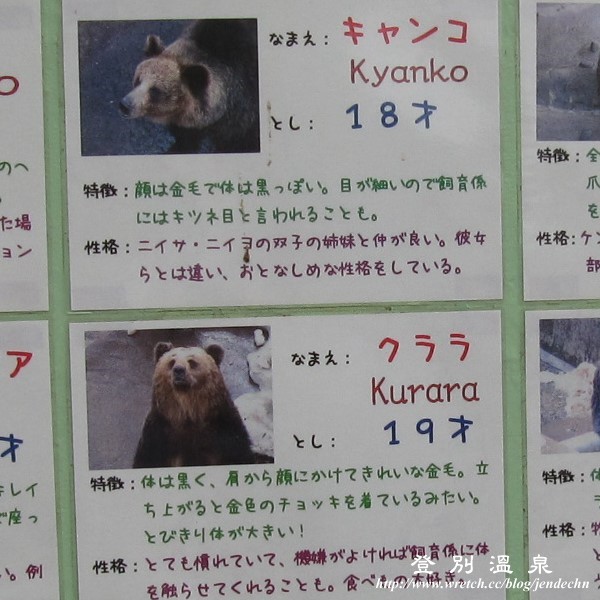 なまえ： キャンコ
Kyanko
とし： 18才
特徴：顔は金毛で体は黒っぽい。目が細いので飼育係
にはキツネ目と言われることも。
性格：ニイサ・ニイヨの双子の姉妹と仲が良い。彼女
らとは違い、おとなしめな性格をしている。
なまえ： クララ
Kurara
とし： 19才
特徴：体は黒く、肩から顔にかけてきれいな金毛。立
ち上がると金色のチョッキを着ているみたい。
とびきり体が大きい！
性格：とても慣れていて、機嫌がよければ飼育係に体
を触らせてくれることも。食べもの大好き。
o
のへ
た場
ョン
ア
才
キレイ
で座っ
い。例
特徴：全
爪
を
性格：ケン
部
特徴：体
性格：物
登別溫泉
http://www.wretch.cc/blog/jendechn